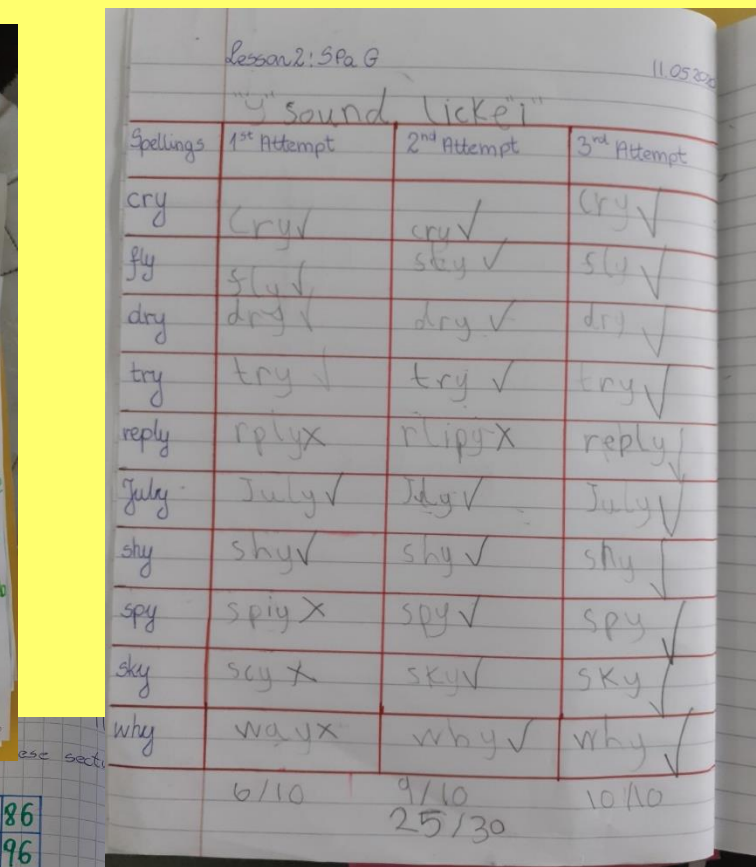 Lesson 2: SPaG
11.05.202
"y" sound licke "i"
Spellings 1st Attempt 2nd Attempt 3rd Attempt
cry cry✓ cry✓ cry✓
fly fly✓ sky✓ fly✓
dry dry✓ dry✓ dry✓
try try✓ try✓ try✓
reply rplyx rlipyx reply✓
July July✓ July✓ July✓
shy shy✓ shy✓ shy✓
spy spiyx spy✓ spy✓
sky scyx sky✓ sky✓
why wayx why✓ why✓
6/10 9/10 10/10
25/30
ese secti
86
96